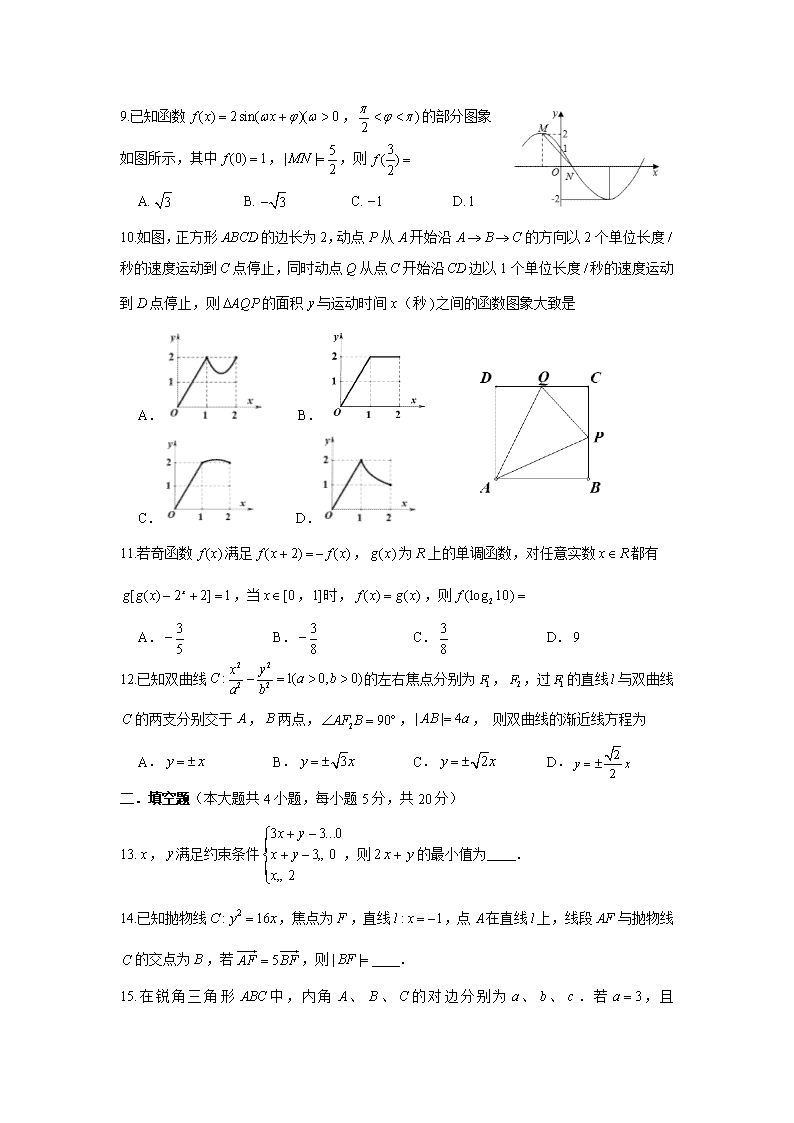 9.已知函数 f(x) = 2sin(ωx + φ)(ω > 0，π/2 < φ < π) 的部分图象
y
M
2
1
O
N
x
-2
如图所示，其中 f(0) = 1，|MN|= 5/2，则 f(3/2) =
A. √3 B. −√3 C. −1 D. 1
10.如图，正方形 ABCD 的边长为 2，动点 P 从 A 开始沿 A → B → C 的方向以 2 个单位长度 /
秒的速度运动到 C 点停止，同时动点 Q 从点 C 开始沿 CD 边以 1 个单位长度 / 秒的速度运动
到 D 点停止，则 ΔAQP 的面积 y 与运动时间 x（秒 )之间的函数图象大致是
A． y 2 1 O 1 2 x B． y 2 1 O 1 2 x
C． y 2 1 O 1 2 x D． y 2 1 O 1 2 x
D Q C
P
A B
11.若奇函数 f(x) 满足 f(x + 2) = −f(x)，g(x) 为 R 上的单调函数，对任意实数 x ∈ R 都有
g[g(x) − 2ˣ + 2] = 1，当 x ∈ [0，1] 时，f(x) = g(x)，则 f(log₂ 10) =
A．−3/5 B．−3/8 C．3/8 D．9
12.已知双曲线 C : x²/a² − y²/b² = 1(a > 0, b > 0) 的左右焦点分别为 F₁，F₂，过 F₁ 的直线 l 与双曲线
C 的两支分别交于 A，B 两点，∠AF₂B = 90°，| AB |= 4a， 则双曲线的渐近线方程为
A．y = ± x B．y = ± √3x C．y = ± √2x D．y = ± √2/2 x
二．填空题（本大题共 4 小题，每小题 5 分，共 20 分）
13. x，y 满足约束条件 {3x + y − 3…0
x + y − 3,, 0
x,, 2
，则 2 x + y 的最小值为____．
14.已知抛物线 C : y² = 16x，焦点为 F，直线 l : x = −1，点 A 在直线 l 上，线段 AF 与抛物线
C 的交点为 B，若 AF⃗ = 5BF⃗，则 | BF |= ____．
15.在锐角三角形 ABC 中，内角 A、 B、 C 的对边分别为 a、 b、 c ．若 a = 3，且